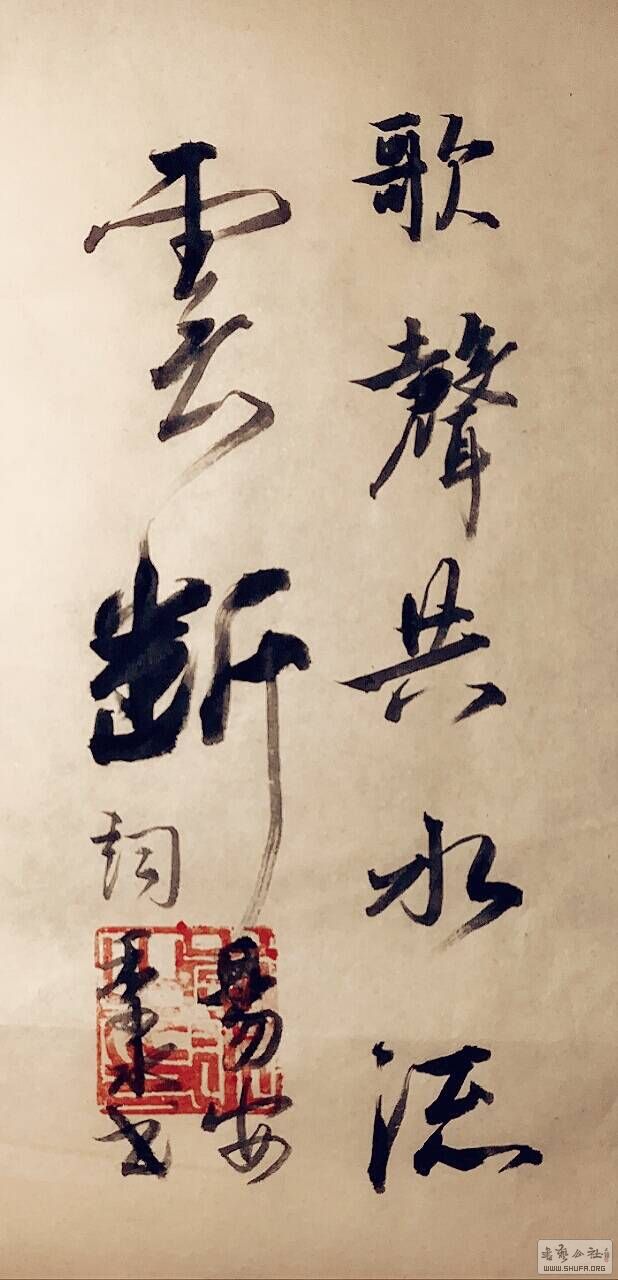 歌聲共水流
雲斷
易安
詞
書
書藝公社
WWW.SHUFA.ORG